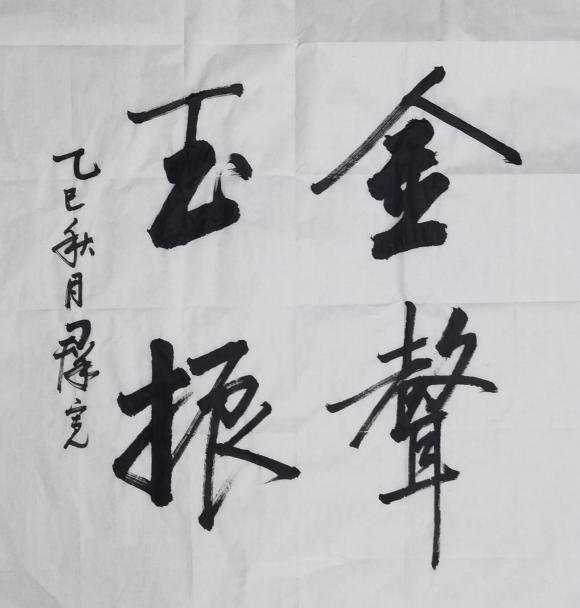 金聲
玉振
乙巳秋月